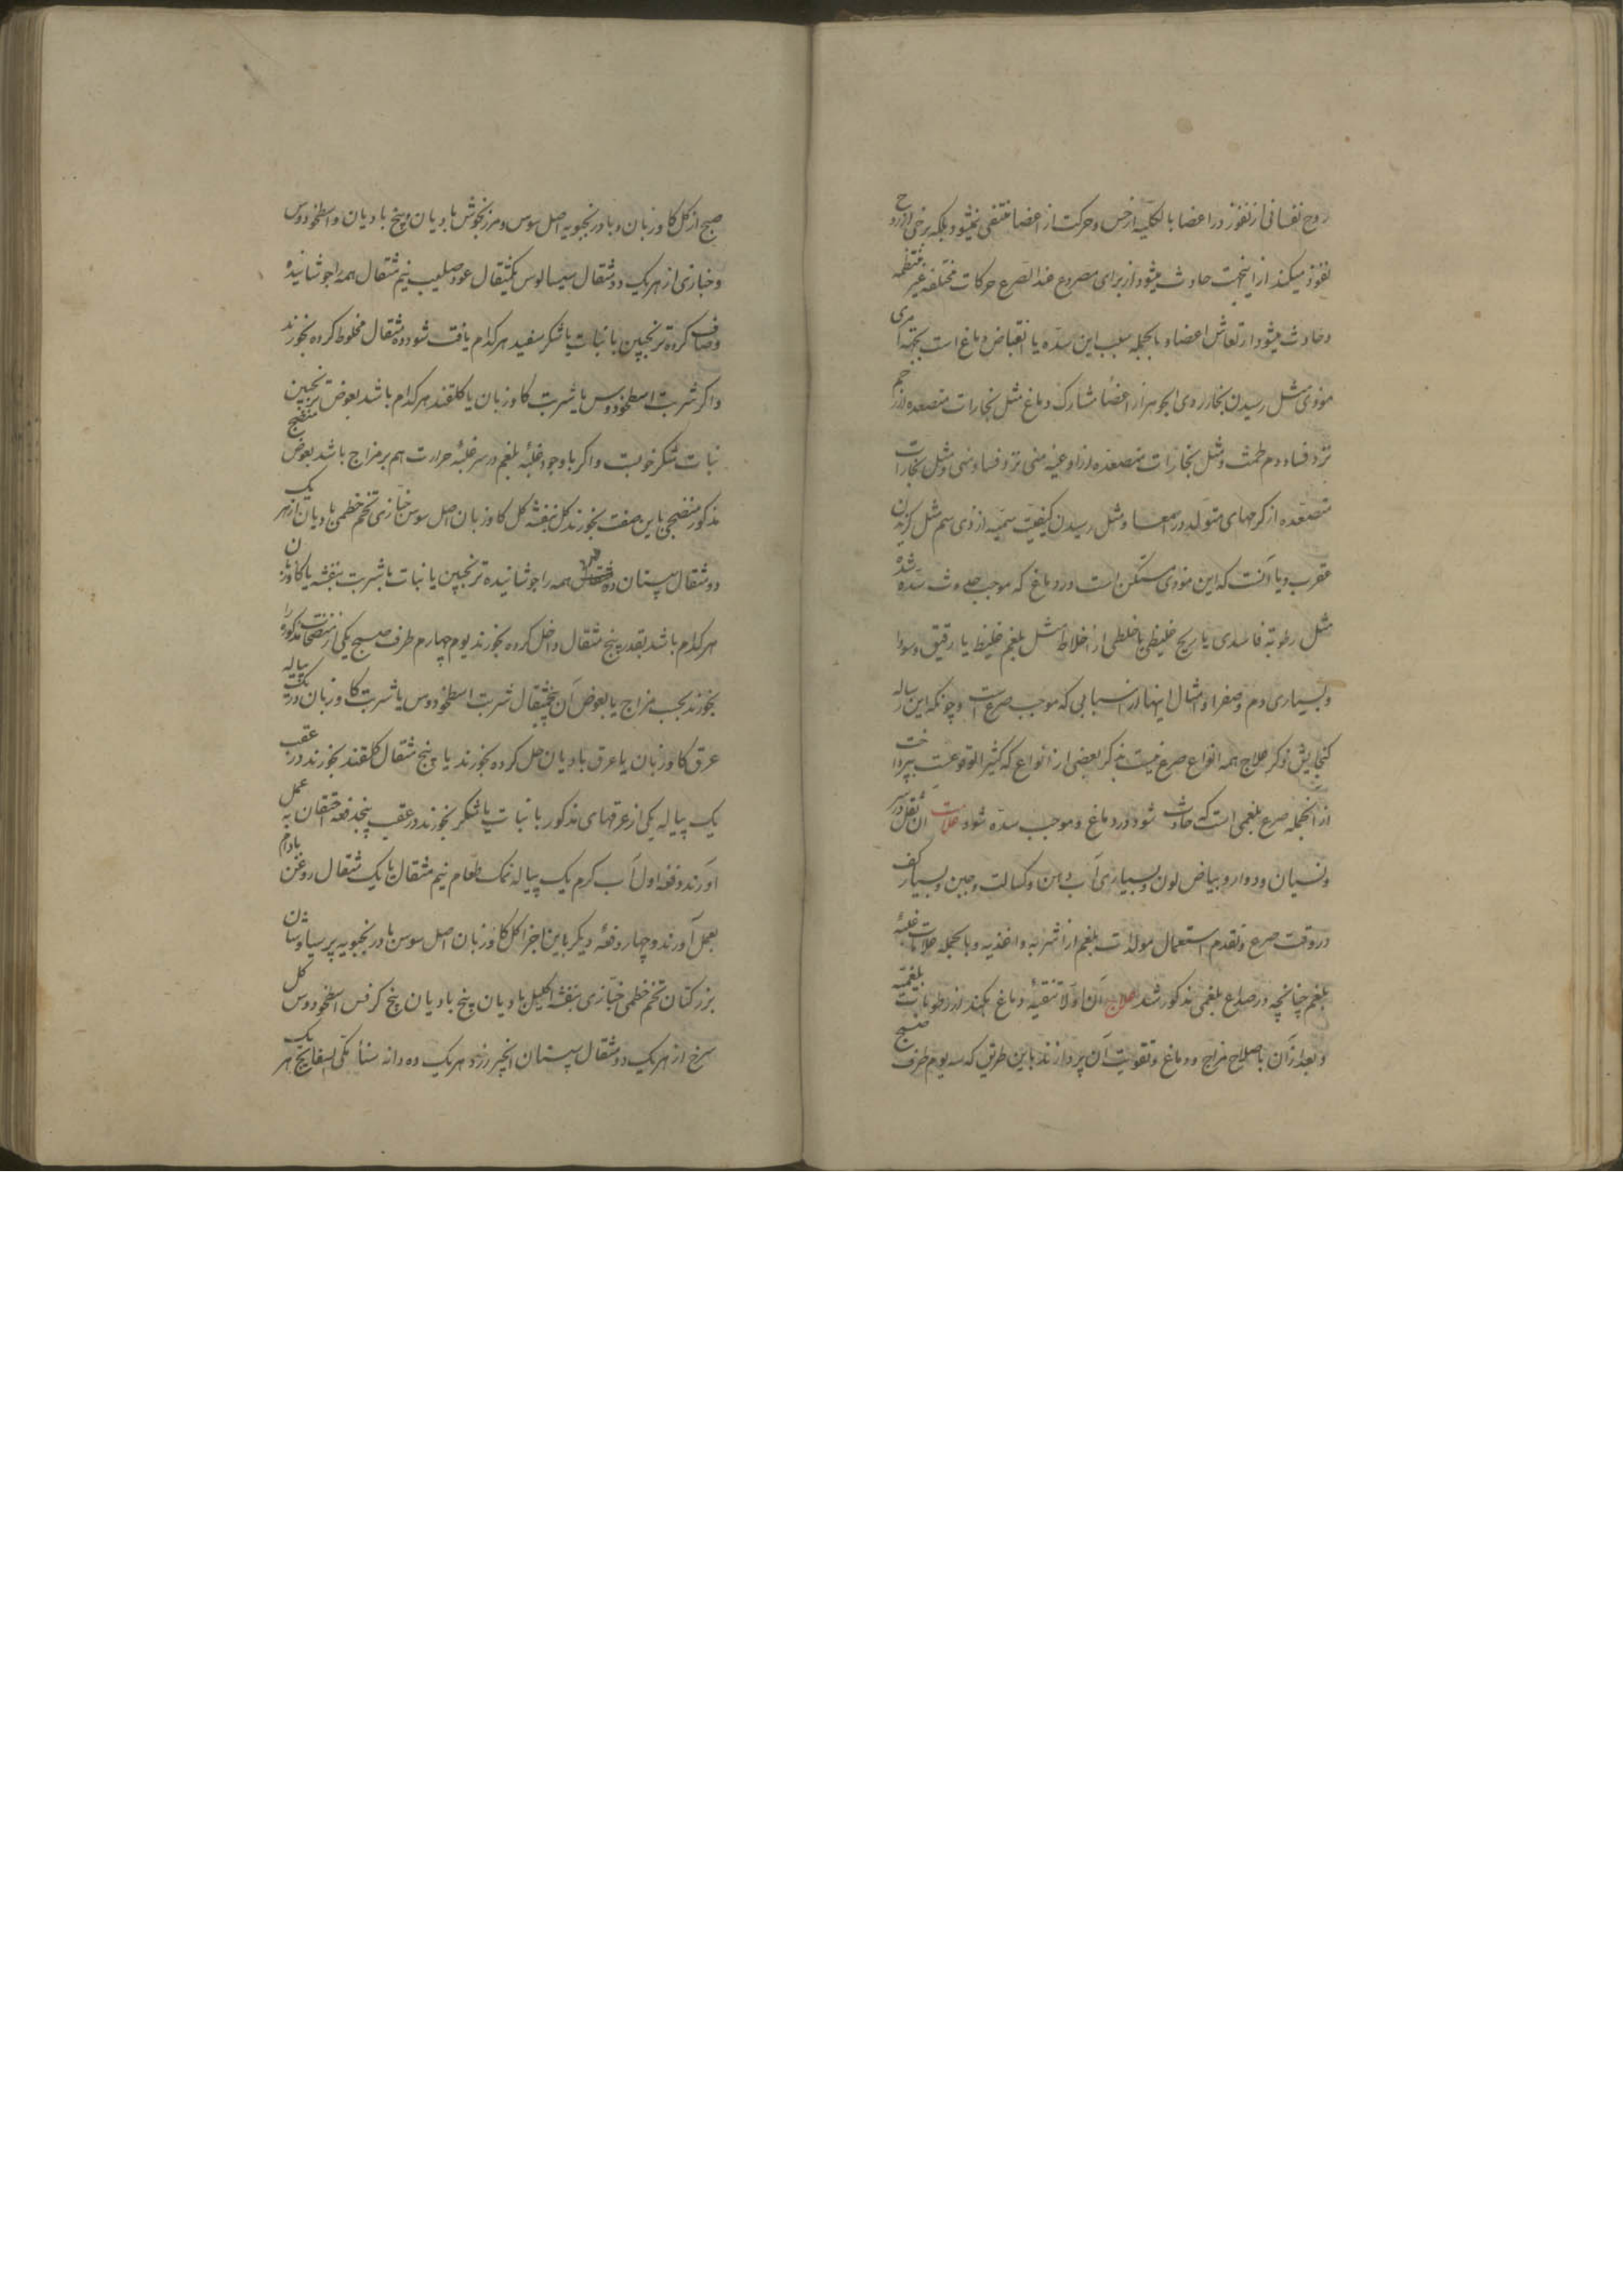 روح نفسانی از نفوذ در اعضا بالکلیه از حس و حرکت از اعضا منتفی نمیشود بلکه برخی از روح
نفوذ میکند از اینجهت حادث میشود از برای مصروع عند الصرع حرکات مختلفه غیر منتظمه
و حادث میشود ارتعاش اعضا و بالجمله سبب این سده یا انقباض دماغ است بجهة امری
موذی مثل رسیدن بخار ردی الجوهر از اعضا مشارک دماغ مثل بخارات متصعده از رحم
نزد فساد دم طمث و مثل بخارات متصعده از اوعیه منی نزد فساد منی و مثل بخارات
متصعده از کرمهای متولد در امعا و مثل رسیدن کیفیت سمیه از ذی سم مثل کزیدن
عقرب و یا آنست که این موذی متمکن است در دماغ که موجب حدوث سده شده
مثل رطوبة فاسدی یا ریح غلیظی یا خلطی از اخلاط مثل بلغم غلیظ یا رقیق و سودا
و بسیاری دم و صفرا و امثال اینها از اسبابی که موجب صرع است و چونکه این رساله
کنجایش ذکر علاج همه انواع صرع نیست بذکر بعضی از انواع که کثیر الوقوعست پرداخت
از انجمله صرع بلغمی است که حادث شود در دماغ و موجب سده شود علامات آن ثقل در سر
و نسیان و دوار و بیاض لون و بسیاری آب دهن و کسالت و جبن و بسیار کف
در وقت صرع و تقدم استعمال مولدات بلغم از اشربه و اغذیه و بالجمله علامات غلبهٔ
بلغم چنانچه در صداع بلغمی مذکور شد علاج آن اولا تنقیهٔ دماغ بکند از رطوبات بلغمیه
و بعد از آن باصلاح مزاج و دماغ و تقویت آن پردازند باین طریق که سه یوم طرف صبح
صبح از کل کاوزبان و بادرنجبویه اصل سوس و مرزنجوش بادیان و بیخ بادیان و اسطخودوس
و خبازی از هر یک دو مثقال سیسالیوس یکمثقال عود صلیب نیم مثقال همه را جوشانیده
و صاف کرده ترنجبین یا نبات یا شکر سفید هر کدام یافت شود ده مثقال مخلوط کرده بخورند
و اکر شربت اسطخودوس یا شربت کاوزبان یا کلقند هر کدام باشد بعوض ترنجبین
نبات شکر خوبست و اکر با وجود غلبهٔ بلغم در سر غلبهٔ حرارت هم بر مزاج باشد بعوض منضج
مذکور منضجی باین صفت بخورند کل بنفشه کل کاوزبان اصل سوس خبازی تخم خطمی بادیان از هر یک
دو مثقال سپستان ده همه را جوشانیده ترنجبین یا نبات یا شربت بنفشه یا کاوزبان
هر کدام باشد بقدر پنج مثقال داخل کرده بخورند یوم چهارم طرف صبح یکی از منضجات مذکوره را
بخورند بحسب مزاج یا بعوض آن پنجمثقال شربت اسطخودوس یا شربت کاوزبان در یک پیاله
عرق کاوزبان یا عرق بادیان حل کرده بخورند یا پنج مثقال کلقند بخورند در عقب
یک پیاله یکی از عرقهای مذکور با نبات یا شکر بخورند در عقب پنجدفعه احتقان به عمل
آورند دفعه اول آب کرم یک پیاله نمک طعام نیم مثقال با یک مثقال روغن بادام
بعمل آورند و چهار دفعهٔ دیکر باین اجزا کل کاوزبان اصل سوس بادرنجبویه پرسیاوشان
بزر کتان تخم خطمی خبازی بنفشه اکلیل بادیان بیخ بادیان بیخ کرفس اسطخودوس کل
سرخ از هر یک دو مثقال سپستان انجیر زرد هر یک ده دانه سناء مکی بسفایج هر یک